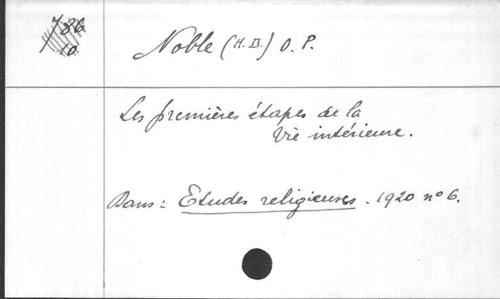 786
10
Noble (H.D.) O.P.
Les premières étapes de la
vie intérieure.
Dans : Etudes religieuses. 1920 n° 6.